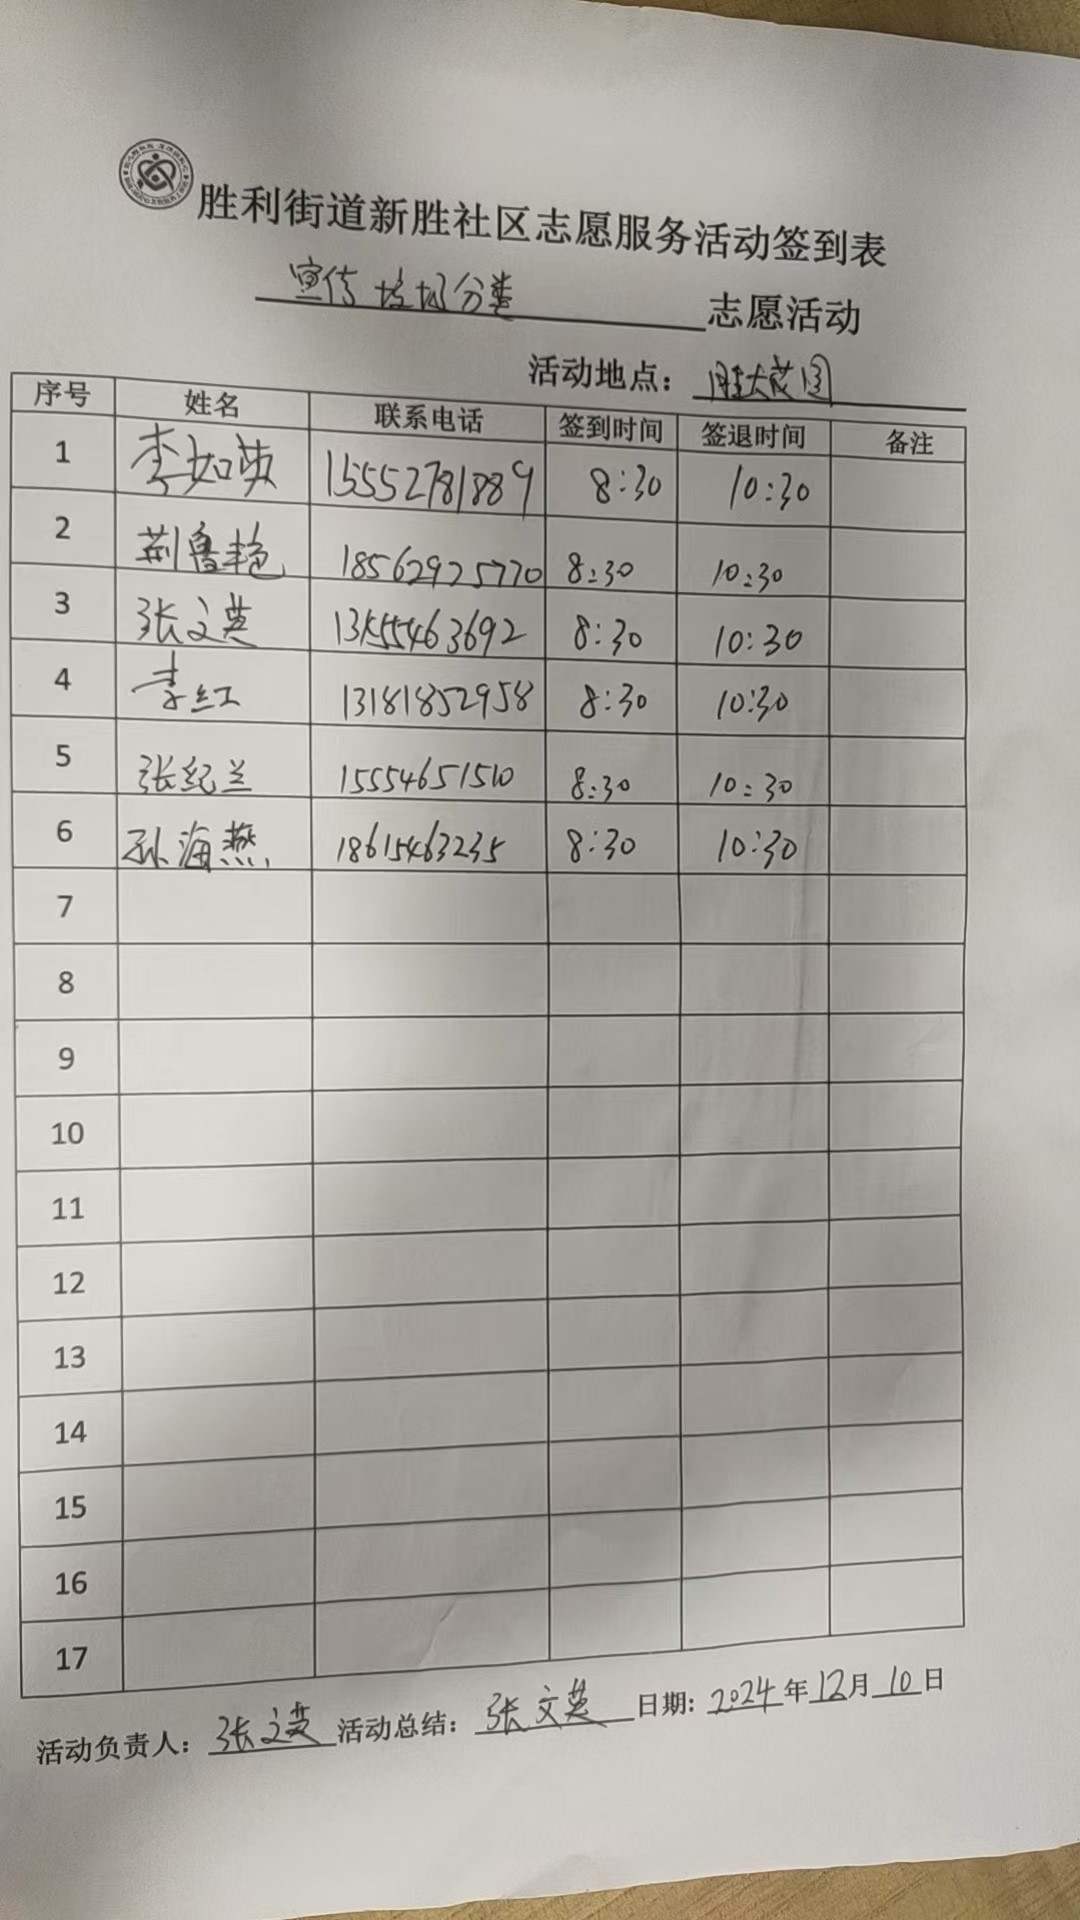 胜利街道新胜社区志愿服务活动签到表
宣传垃圾分类 志愿活动
活动地点：胜大花园
序号 姓名 联系电话 签到时间 签退时间 备注
1 李如英 15552781889 8:30 10:30
2 荆鲁艳 18562925770 8:30 10:30
3 张文英 8:30 10:30
4 李红 13181852958 8:30 10:30
5 张纪兰 15554651510 8:30 10:30
6 孙海燕 18615463235 8:30 10:30
7
8
9
10
11
12
13
14
15
16
17
活动负责人：张文英 活动总结：张文英 日期：2024年12月10日